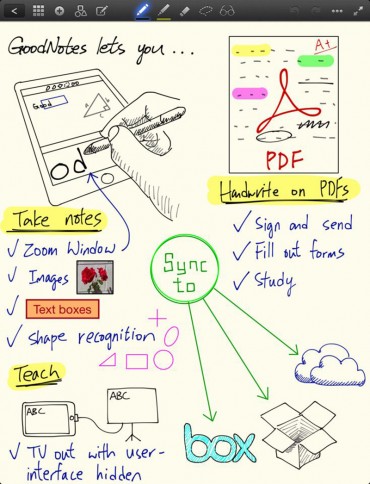 GoodNotes lets you ...
Good
od
A+
PDF
Take notes
✓ Zoom Window
✓ Images
✓ Text boxes
✓ Shape recognition
Handwrite on PDFs
✓ Sign and send
✓ Fill out forms
✓ Study
Sync
to
Teach
ABC
ABC
✓ TV out with user-
interface hidden
box